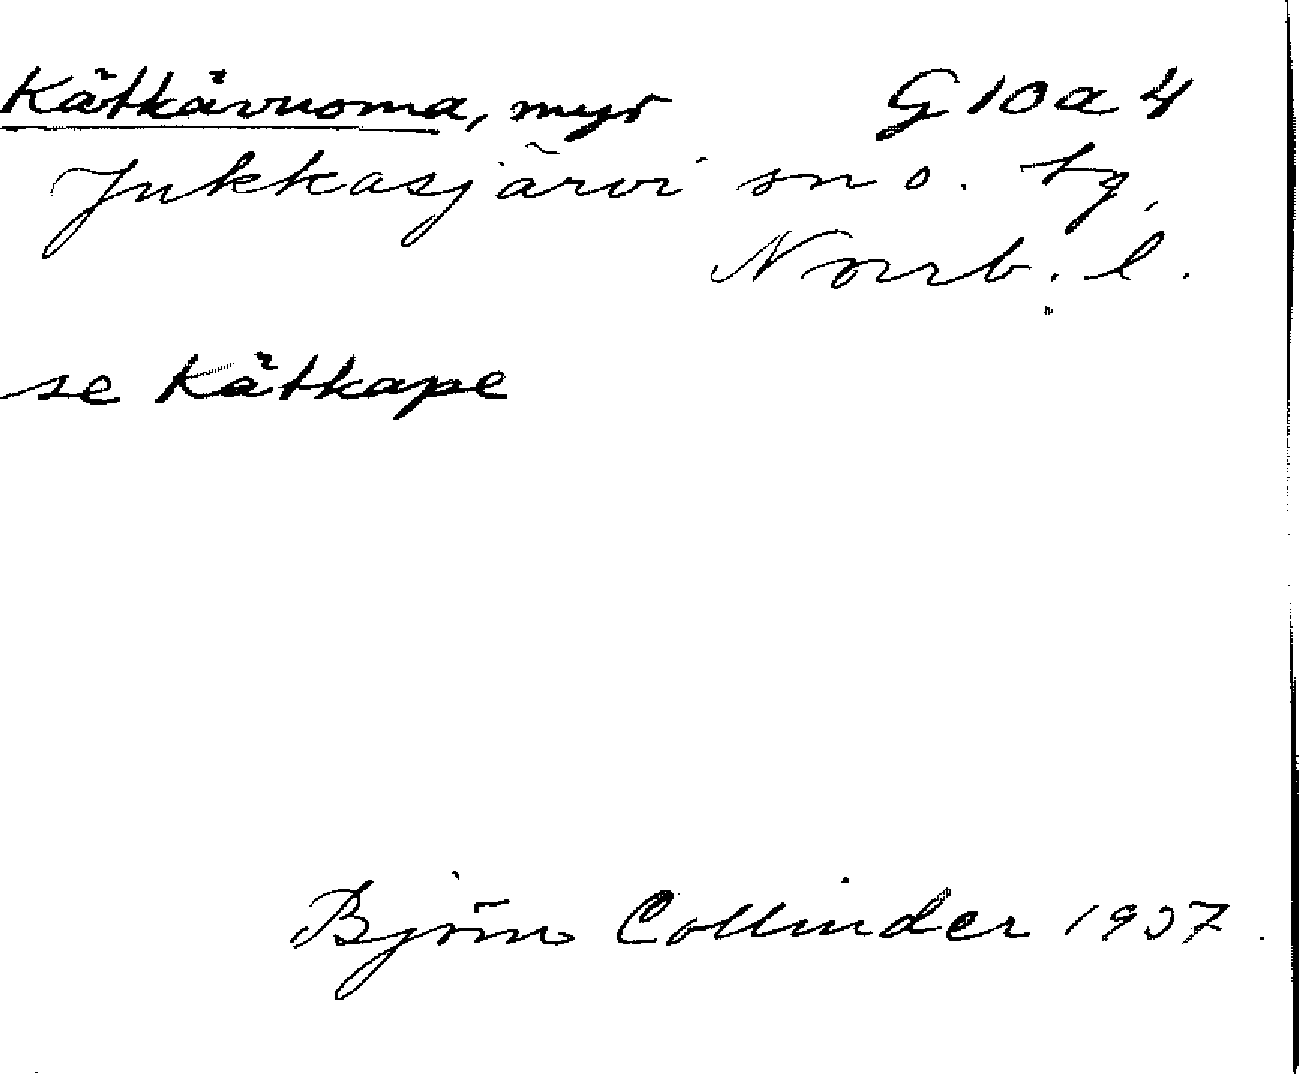 Kätkävuoma, myr G 10 a 4
Jukkasjärvi sn o. tg,
Norrb. l.
se Kätkape
Björn Collinder 1937.